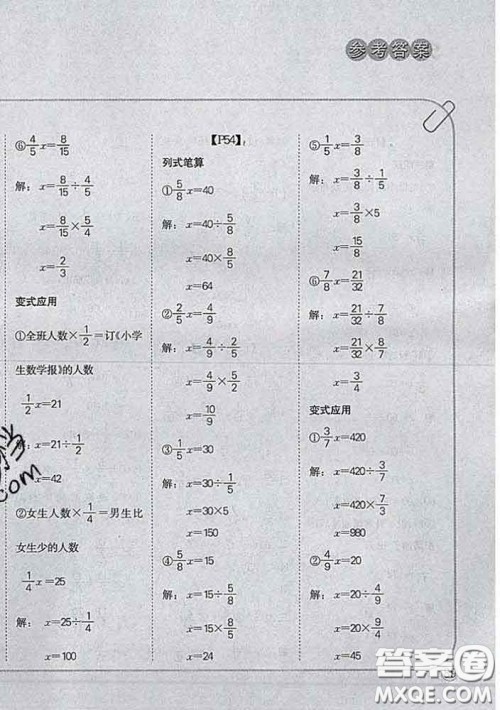 参考答案
⑥4/5x=8/15
解：x=8/15÷4/5
x=8/15×5/4
x=2/3
变式应用
①全班人数×1/2=订《小学
生数学报》的人数
1/2x=21
解：x=21÷1/2
x=42
②女生人数×1/4=男生比
女生少的人数
1/4x=25
解：x=25÷1/4
x=100
【P54】
列式笔算
①5/8x=40
解：x=40÷5/8
x=40×8/5
x=64
②2/5x=4/9
解：x=4/9÷2/5
x=4/9×5/2
x=10/9
③1/5x=30
解：x=30÷1/5
x=30×5
x=150
④5/8x=15
解：x=15÷5/8
x=15×8/5
x=24
⑤1/5x=3/8
解：x=3/8÷1/5
x=3/8×5
x=15/8
⑥7/8x=21/32
解：x=21/32÷7/8
x=21/32×8/7
x=3/4
变式应用
①3/7x=420
解：x=420÷3/7
x=420×7/3
x=980
②4/9x=20
解：x=20÷4/9
x=20×9/4
x=45
答案卷
MXQE.COM